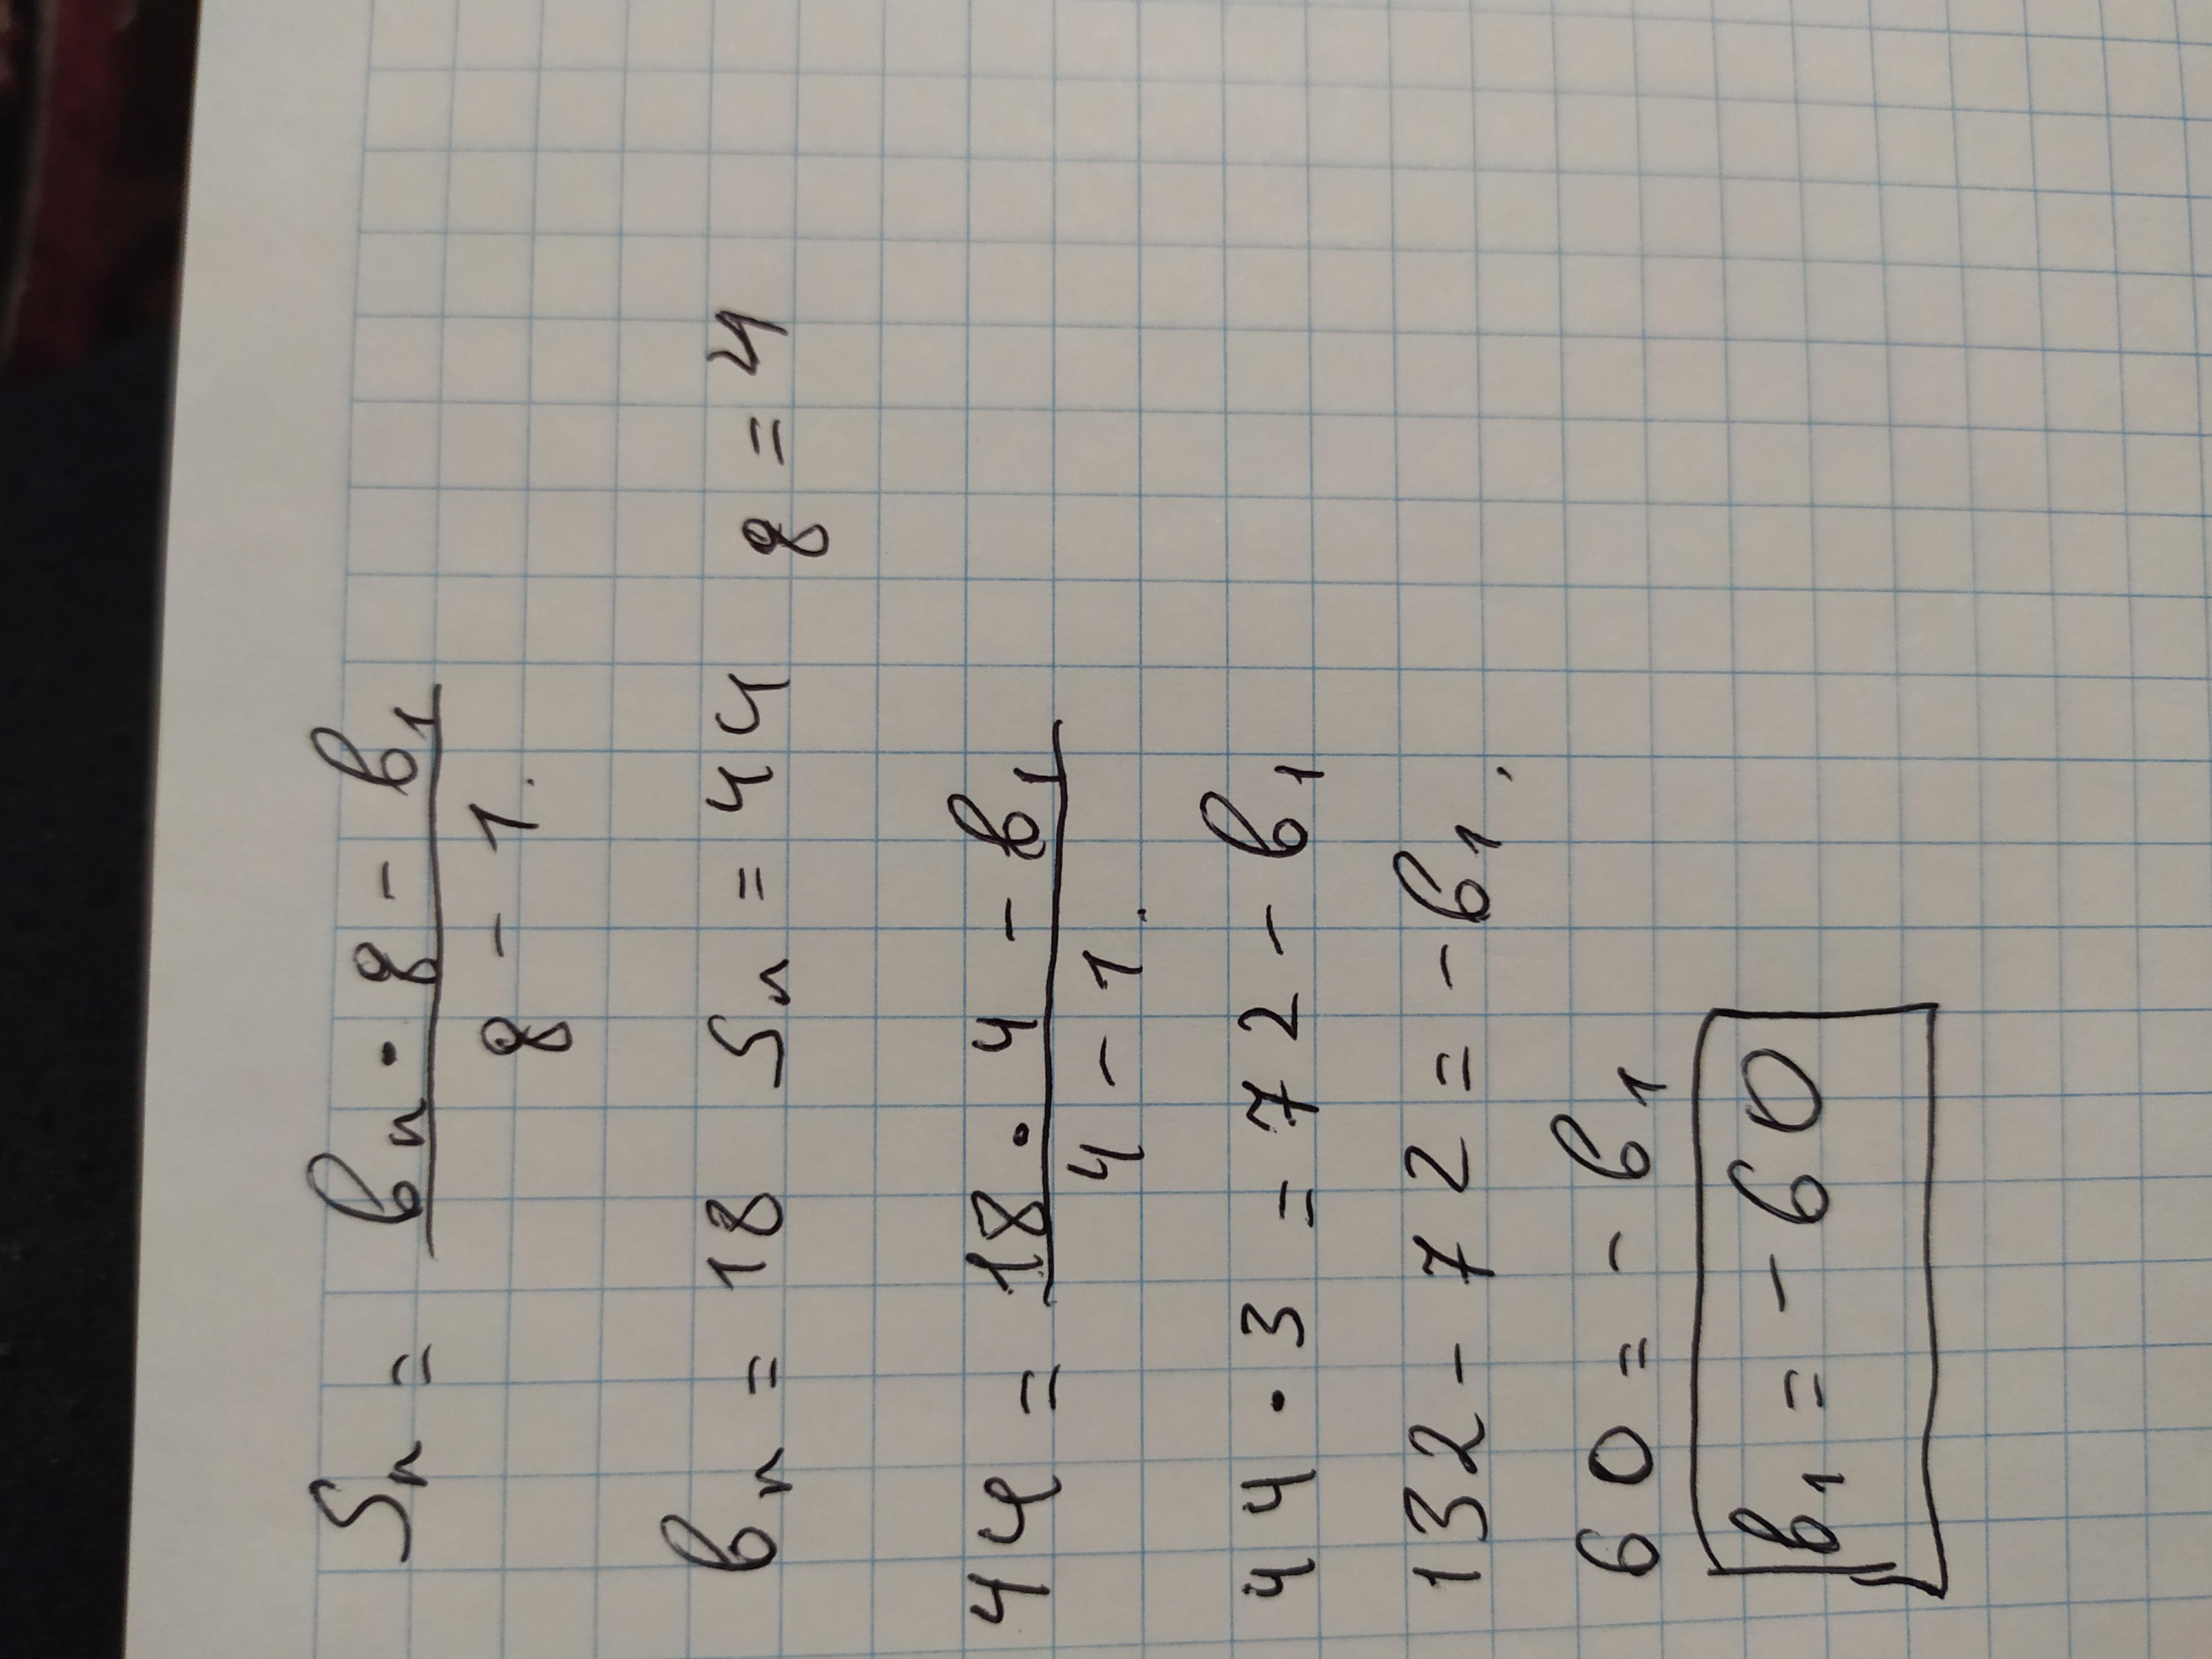 Sn = bn · q - b1
q - 1.
bn = 18 Sn = 44 q = 4
44 = 18 · 4 - b1
4 - 1.
44 · 3 = 72 - b1
132 - 72 = - b1.
60 = - b1
b1 = - 60